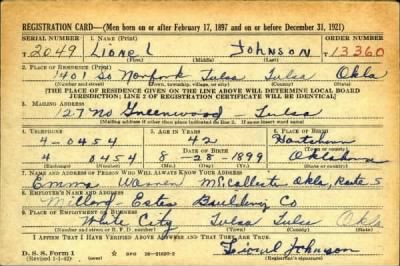 REGISTRATION CARD—(Men born on or after February 17, 1897 and on or before December 31, 1921)
SERIAL NUMBER 1. NAME (Print) ORDER NUMBER
T 2049 Lionel Johnson 13360
(First) (Middle) (Last)
2. PLACE OF RESIDENCE (Print)
1401 So Norfork Tulsa Tulsa Okla
(Number and street) (Town, township, village, or city) (County) (State)
[THE PLACE OF RESIDENCE GIVEN ON THE LINE ABOVE WILL DETERMINE LOCAL BOARD
JURISDICTION; LINE 2 OF REGISTRATION CERTIFICATE WILL BE IDENTICAL]
3. MAILING ADDRESS
127 No Greenwood Tulsa
[Mailing address if other than place indicated on line 2. If same insert word same]
4. TELEPHONE 5. AGE IN YEARS 6. PLACE OF BIRTH
4-0454 42
DATE OF BIRTH
4 0454 8-28-1899 Oklahoma
7. NAME AND ADDRESS OF PERSON WHO WILL ALWAYS KNOW YOUR ADDRESS
Emma Warren McCallester Okla, Route 5
8. EMPLOYER'S NAME AND ADDRESS
Millard-Estes Building Co
9. PLACE OF EMPLOYMENT OR BUSINESS
White City Tulsa Tulsa Okla
(Number and street or R. F. D. number) (Town) (County) (State)
I AFFIRM THAT I HAVE VERIFIED ABOVE ANSWERS AND THAT THEY ARE TRUE.
D. S. S. Form 1 Lionel Johnson
(Revised 1-1-42) (over) (Registrant's signature)